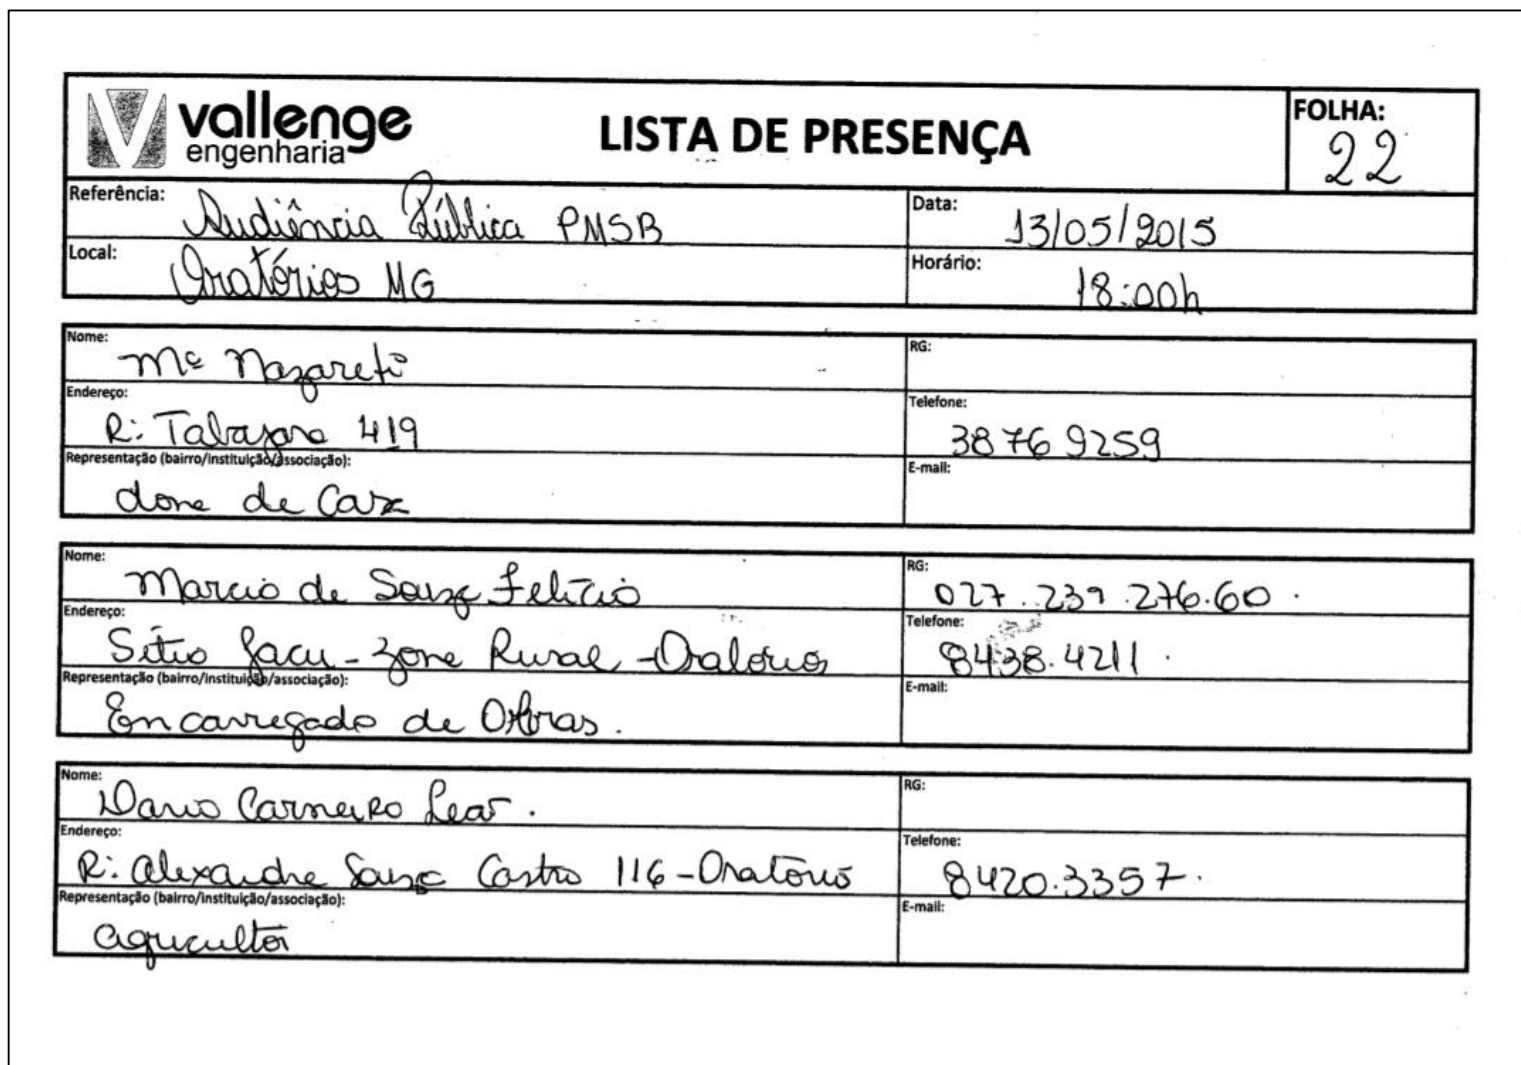 vallenge
engenharia
LISTA DE PRESENÇA
FOLHA:
22
Referência: Audiência Pública PMSB
Data: 13/05/2015
Local: Oratórios MG
Horário: 18:00h
Nome: Mª Nazareti
RG:
Endereço: R: Tabajara 419
Telefone: 3876 9259
Representação (bairro/instituição/associação):
dona de Casa
E-mail:
Nome: Marcio de Souza Felício
RG: 027.239.276.60.
Endereço: Sítio Jacu - zona Rural - Oratórios
Telefone: 8438.4211.
Representação (bairro/instituição/associação):
Encarregado de Obras.
E-mail:
Nome: Dario Carneiro Leão.
RG:
Endereço: R: Alexandre Souza Castro 116 - Oratório
Telefone: 8420.3357.
Representação (bairro/instituição/associação):
agricultor
E-mail: